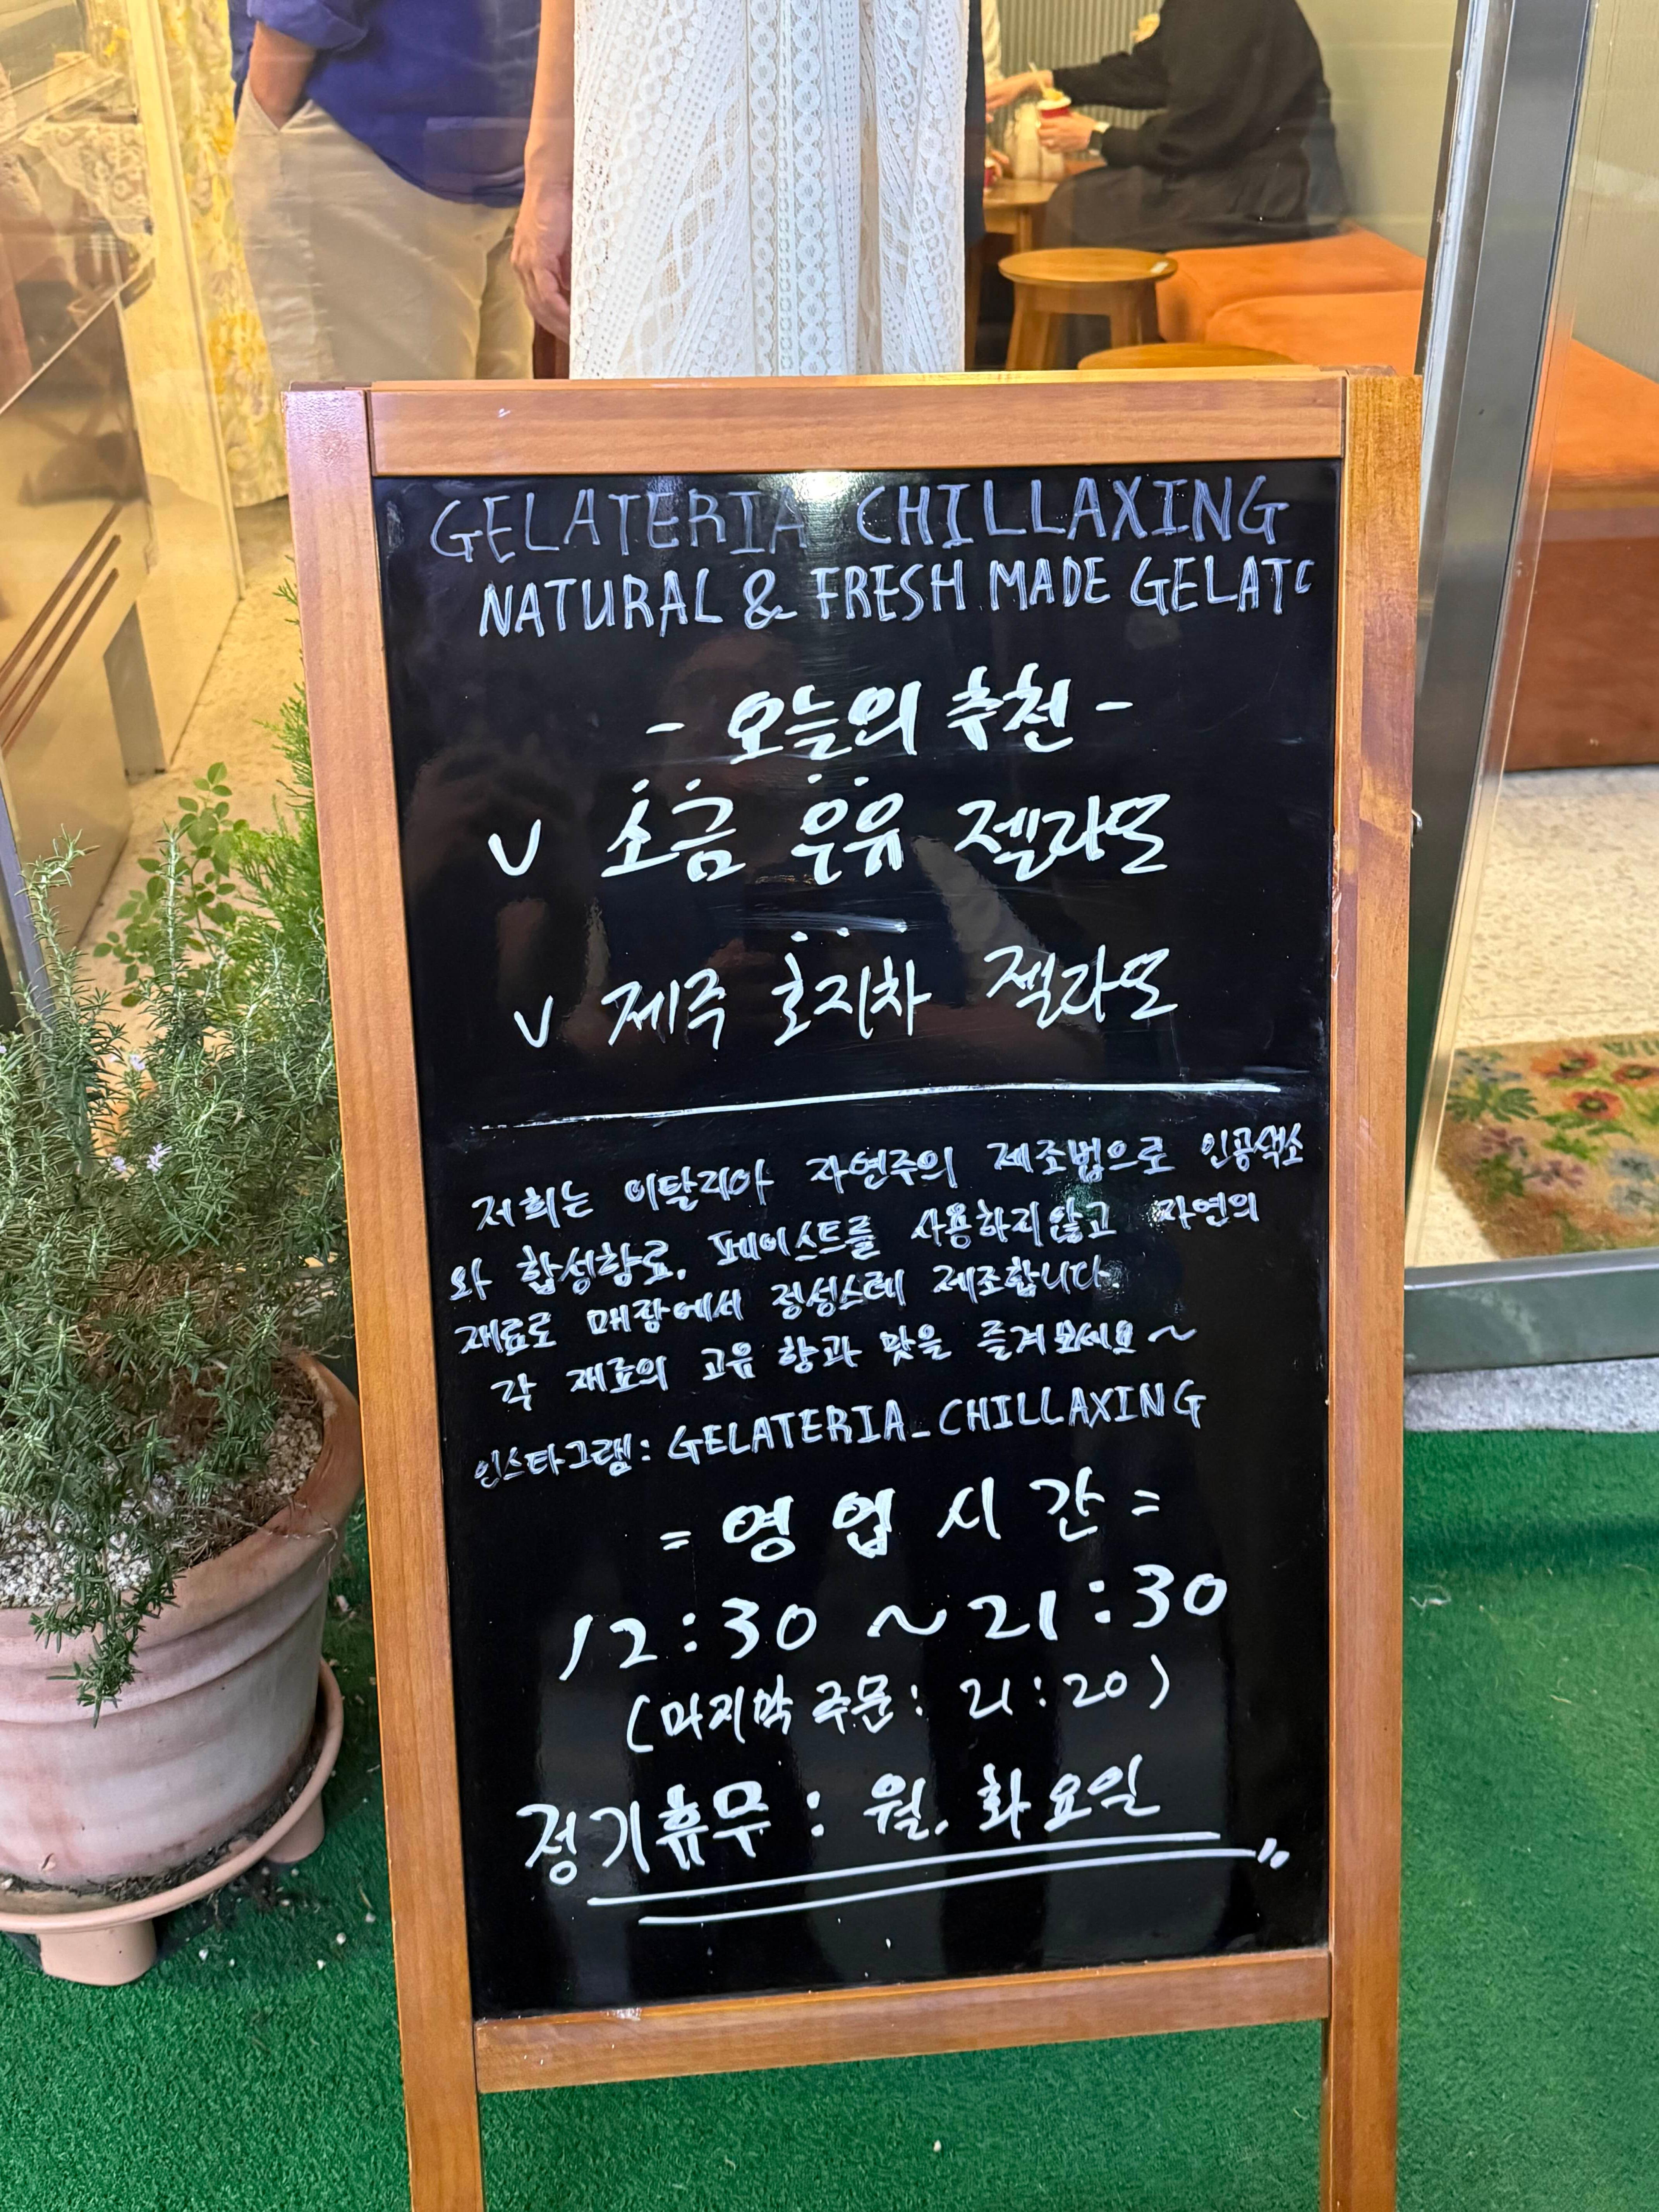 GELATERIA CHILLAXING
NATURAL & FRESH MADE GELATO
- 오늘의 추천 -
V 소금 우유 젤라또
V 제주 호지차 젤라또
저희는 이탈리아 자연주의 제조법으로 인공색소
와 합성향료, 페이스트를 사용하지않고 자연의
재료로 매장에서 정성스레 제조합니다.
각 재료의 고유 향과 맛을 즐겨보세요~
인스타그램: GELATERIA_CHILLAXING
= 영업시간 =
12:30 ~ 21:30
(마지막 주문: 21:20)
정기휴무: 월, 화요일